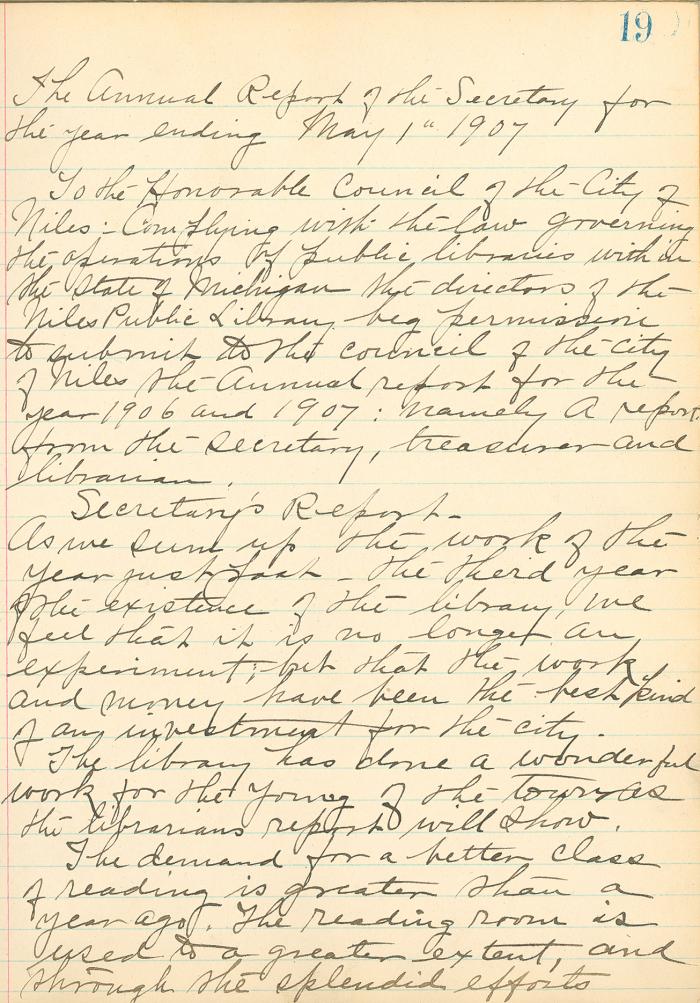 19
The Annual Report of the Secretary for
the year ending May 1" 1907
To the Honorable Council of the City of
Niles:- Complying with the law governing
the operations of public libraries with in
the State of Michigan the directors of the
Niles Public Library beg permission
to submit to the council of the city
of Niles the Annual report for the
year 1906 and 1907: namely A report
from the secretary, treasurer and
librarian.
Secretary's Report-
As we sum up the work of the
year just past - the third year
of the existence of the library, we
feel that it is no longer an
experiment; but that the work
and money have been the best kind
of any investment for the city.
The library has done a wonderful
work for the young of the town as
the librarians report will show.
The demand for a better class
of reading is greater than a
year ago. The reading room is
used to a greater extent, and
through the splendid efforts